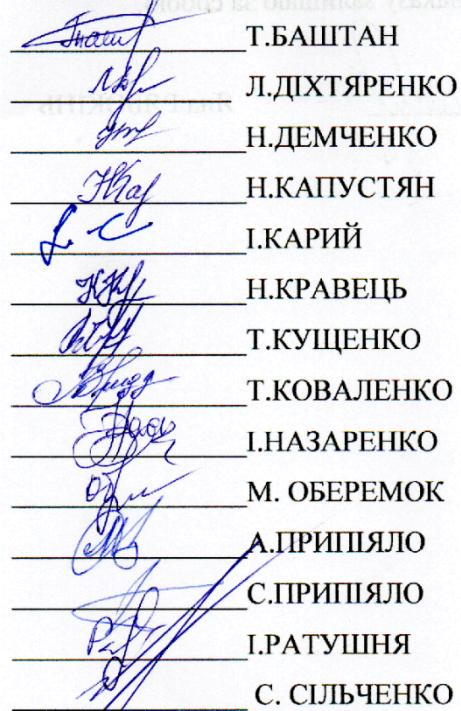 Т.БАШТАН
Л.ДІХТЯРЕНКО
Н.ДЕМЧЕНКО
Н.КАПУСТЯН
І.КАРИЙ
Н.КРАВЕЦЬ
Т.КУЩЕНКО
Т.КОВАЛЕНКО
І.НАЗАРЕНКО
М. ОБЕРЕМОК
А.ПРИПІЯЛО
С.ПРИПІЯЛО
І.РАТУШНЯ
С. СІЛЬЧЕНКО